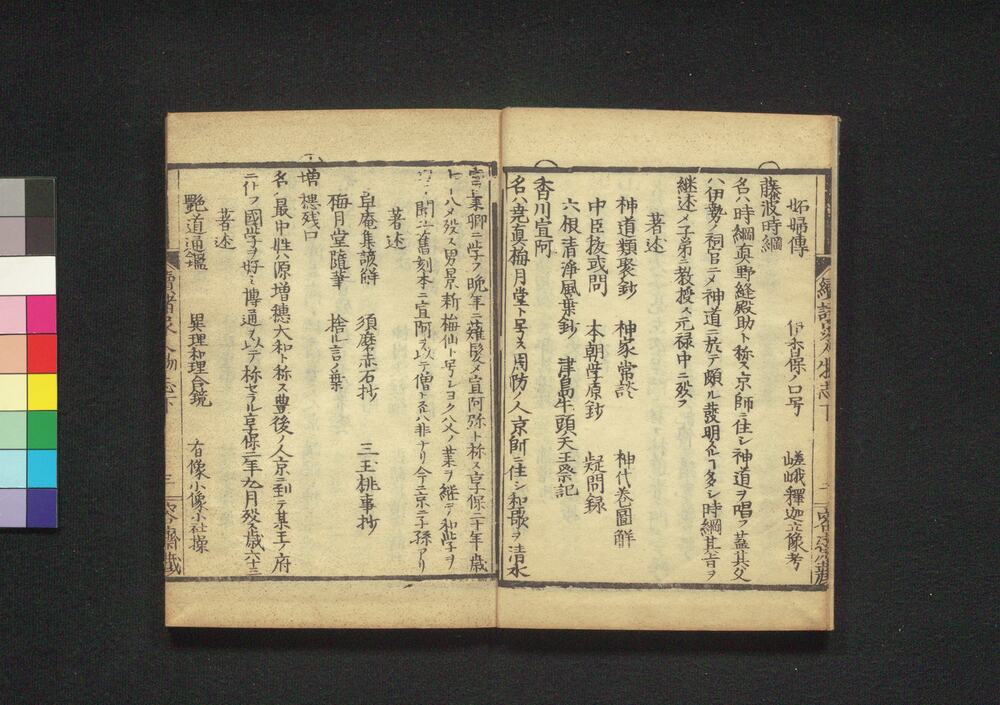 妬婦傳 伊香保ノ口号 嵯峨釋迦立像考
藤波時綱
名ハ時綱眞野縫殿助ト称ス京師ニ住シ神道ヲ唱フ蓋其父
ハ伊勢ノ祠官ニメ神道ニ於テ頗ル發明多シ時綱其旨ヲ
継述メ子弟ニ教授ス元禄中ニ殁ス
著述
神道類聚鈔 神家常談 神代巻圖解
中臣抜或問 本朝學原鈔 疑問録
六根清淨風葉鈔 津島牛頭天王祭記
香川宣阿
名ハ堯真梅月堂ト号ス周防ノ人京師ニ住シ和歌ヲ清水
業卿ニ學フ晩年ニ薙髪メ宣阿弥ト称ス享保二十年歳
八メ殁ス男景新梅仙ト号シヨク父ノ業ヲ継テ和學ヲ
開ク舊刻本ニ宣阿ヲ以テ僧トス八非ナリ今ニ京ニ子孫アリ
著述
草庵集諺解 須磨赤石抄 三玉桃事抄
梅月堂隨筆 捨シ言ノ葉
増穗残口
名ハ最中姓ハ源増穗大和ト称ス豊後ノ人京ニ到テ某王ノ府
ニ仕フ國學ヲ好ミ博通ヲ以テ称セラル享保二年九月殁ス歳六十三
著述
艶道通鑑 異理和理合鏡 有像小像小社操
續諸家人物志下 三 容齋藏